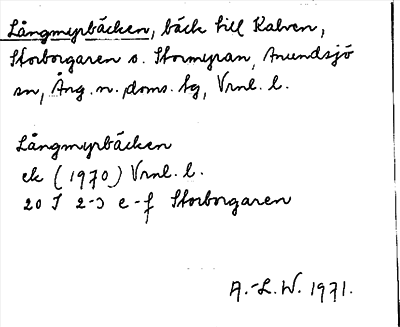 Långmyrbäcken, bäck till Kalven,
Storborgaren o. Stormyran, Anundsjö
sn, Ång. n. doms. tg, Vrnl. l.
Långmyrbäcken
ek (1970) Vrnl. l.
20 I 2-3 e-f Storborgaren
A.-L.W. 1971.